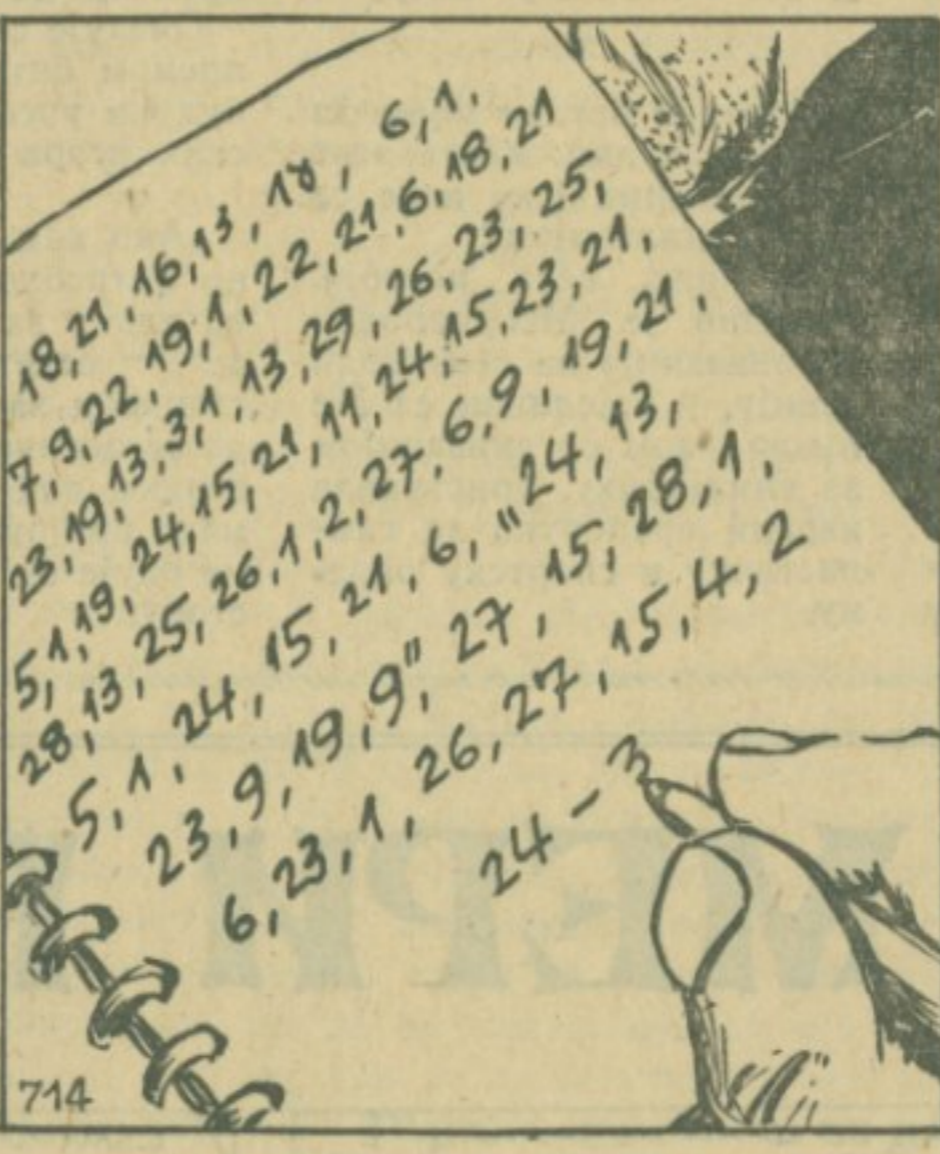 18,21,16,13,18, 6,1.
7,9,22,19,1,22,21,6,18,21
23,19,13,3,1,13,29,26,23,25,
5,1,19,24,15,21,11,24,15,23,21,
28,13,25,26,1,2,27,6,9,19,21.
5,1,24,15,21,6,"24,13,
23,9,19,9", 27,15,28,1.
6,23,1,26,27,15,4,2
24-3
714